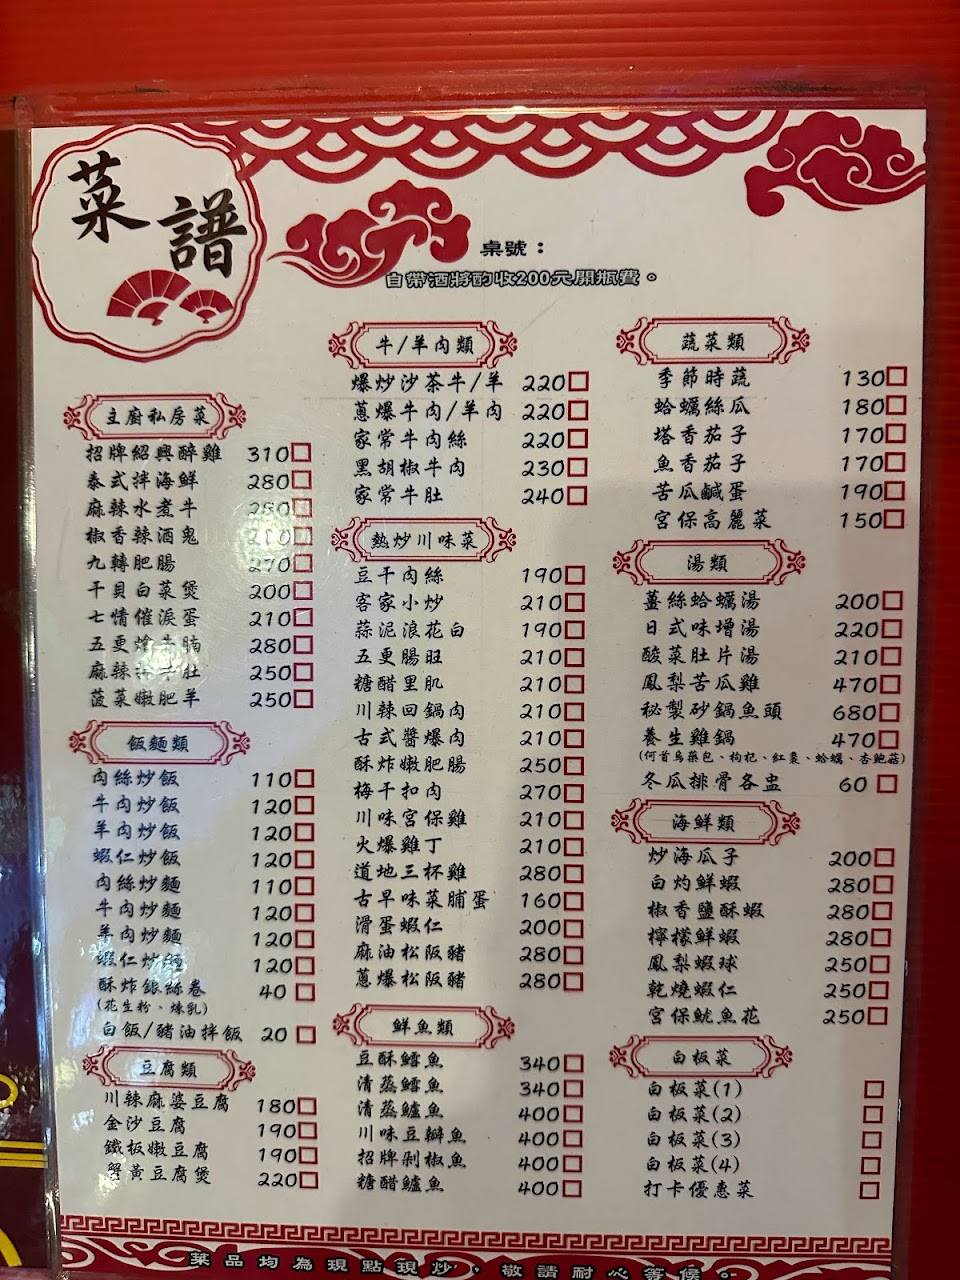 菜譜
桌號：
自帶酒將酌收200元開瓶費。
主廚私房菜
招牌紹興醉雞 310
泰式拌海鮮 280
麻辣水煮牛 280
椒香辣酒鬼
九轉肥腸 270
干貝白菜煲 200
七情催淚蛋 210
五更燴牛腩 280
麻辣 牛肚 250
菠菜嫩肥羊 250
飯麵類
肉絲炒飯 110
牛肉炒飯 120
羊肉炒飯 120
蝦仁炒飯 120
肉絲炒麵 110
牛肉炒麵 120
羊肉炒麵 120
蝦仁炒麵 120
酥炸銀絲卷 40
(花生粉、煉乳)
白飯/豬油拌飯 20
豆腐類
川辣麻婆豆腐 180
金沙豆腐 190
鐵板嫩豆腐 190
蟹黃豆腐煲 220
牛/羊肉類
爆炒沙茶牛/羊 220
蔥爆牛肉/羊肉 220
家常牛肉絲 220
黑胡椒牛肉 230
家常牛肚 240
熱炒川味菜
豆干肉絲 190
客家小炒 210
蒜泥浪花白 190
五更腸旺 210
糖醋里肌 210
川辣回鍋肉 210
古式醬爆肉 210
酥炸嫩肥腸 250
梅干扣肉 270
川味宮保雞 210
火爆雞丁 210
道地三杯雞 280
古早味菜脯蛋 160
滑蛋蝦仁 200
麻油松阪豬 280
蔥爆松阪豬 280
鮮魚類
豆酥鱈魚 340
清蒸鱈魚 340
清蒸鱸魚 400
川味豆瓣魚 400
招牌剁椒魚 400
糖醋鱸魚 400
蔬菜類
季節時蔬 130
蛤蠣絲瓜 180
塔香茄子 170
魚香茄子 170
苦瓜鹹蛋 190
宮保高麗菜 150
湯類
薑絲蛤蠣湯 200
日式味增湯 220
酸菜肚片湯 210
鳳梨苦瓜雞 470
秘製砂鍋魚頭 680
養生雞鍋 470
(何首烏藥包、枸杞、紅棗、蛤蠣、杏鮑菇)
冬瓜排骨各盅 60
海鮮類
炒海瓜子 200
白灼鮮蝦 280
椒香鹽酥蝦 280
檸檬鮮蝦 280
鳳梨蝦球 250
乾燒蝦仁 250
宮保魷魚花 250
白板菜
白板菜(1)
白板菜(2)
白板菜(3)
白板菜(4)
打卡優惠菜
菜品均為現點現炒，敬請耐心等候。